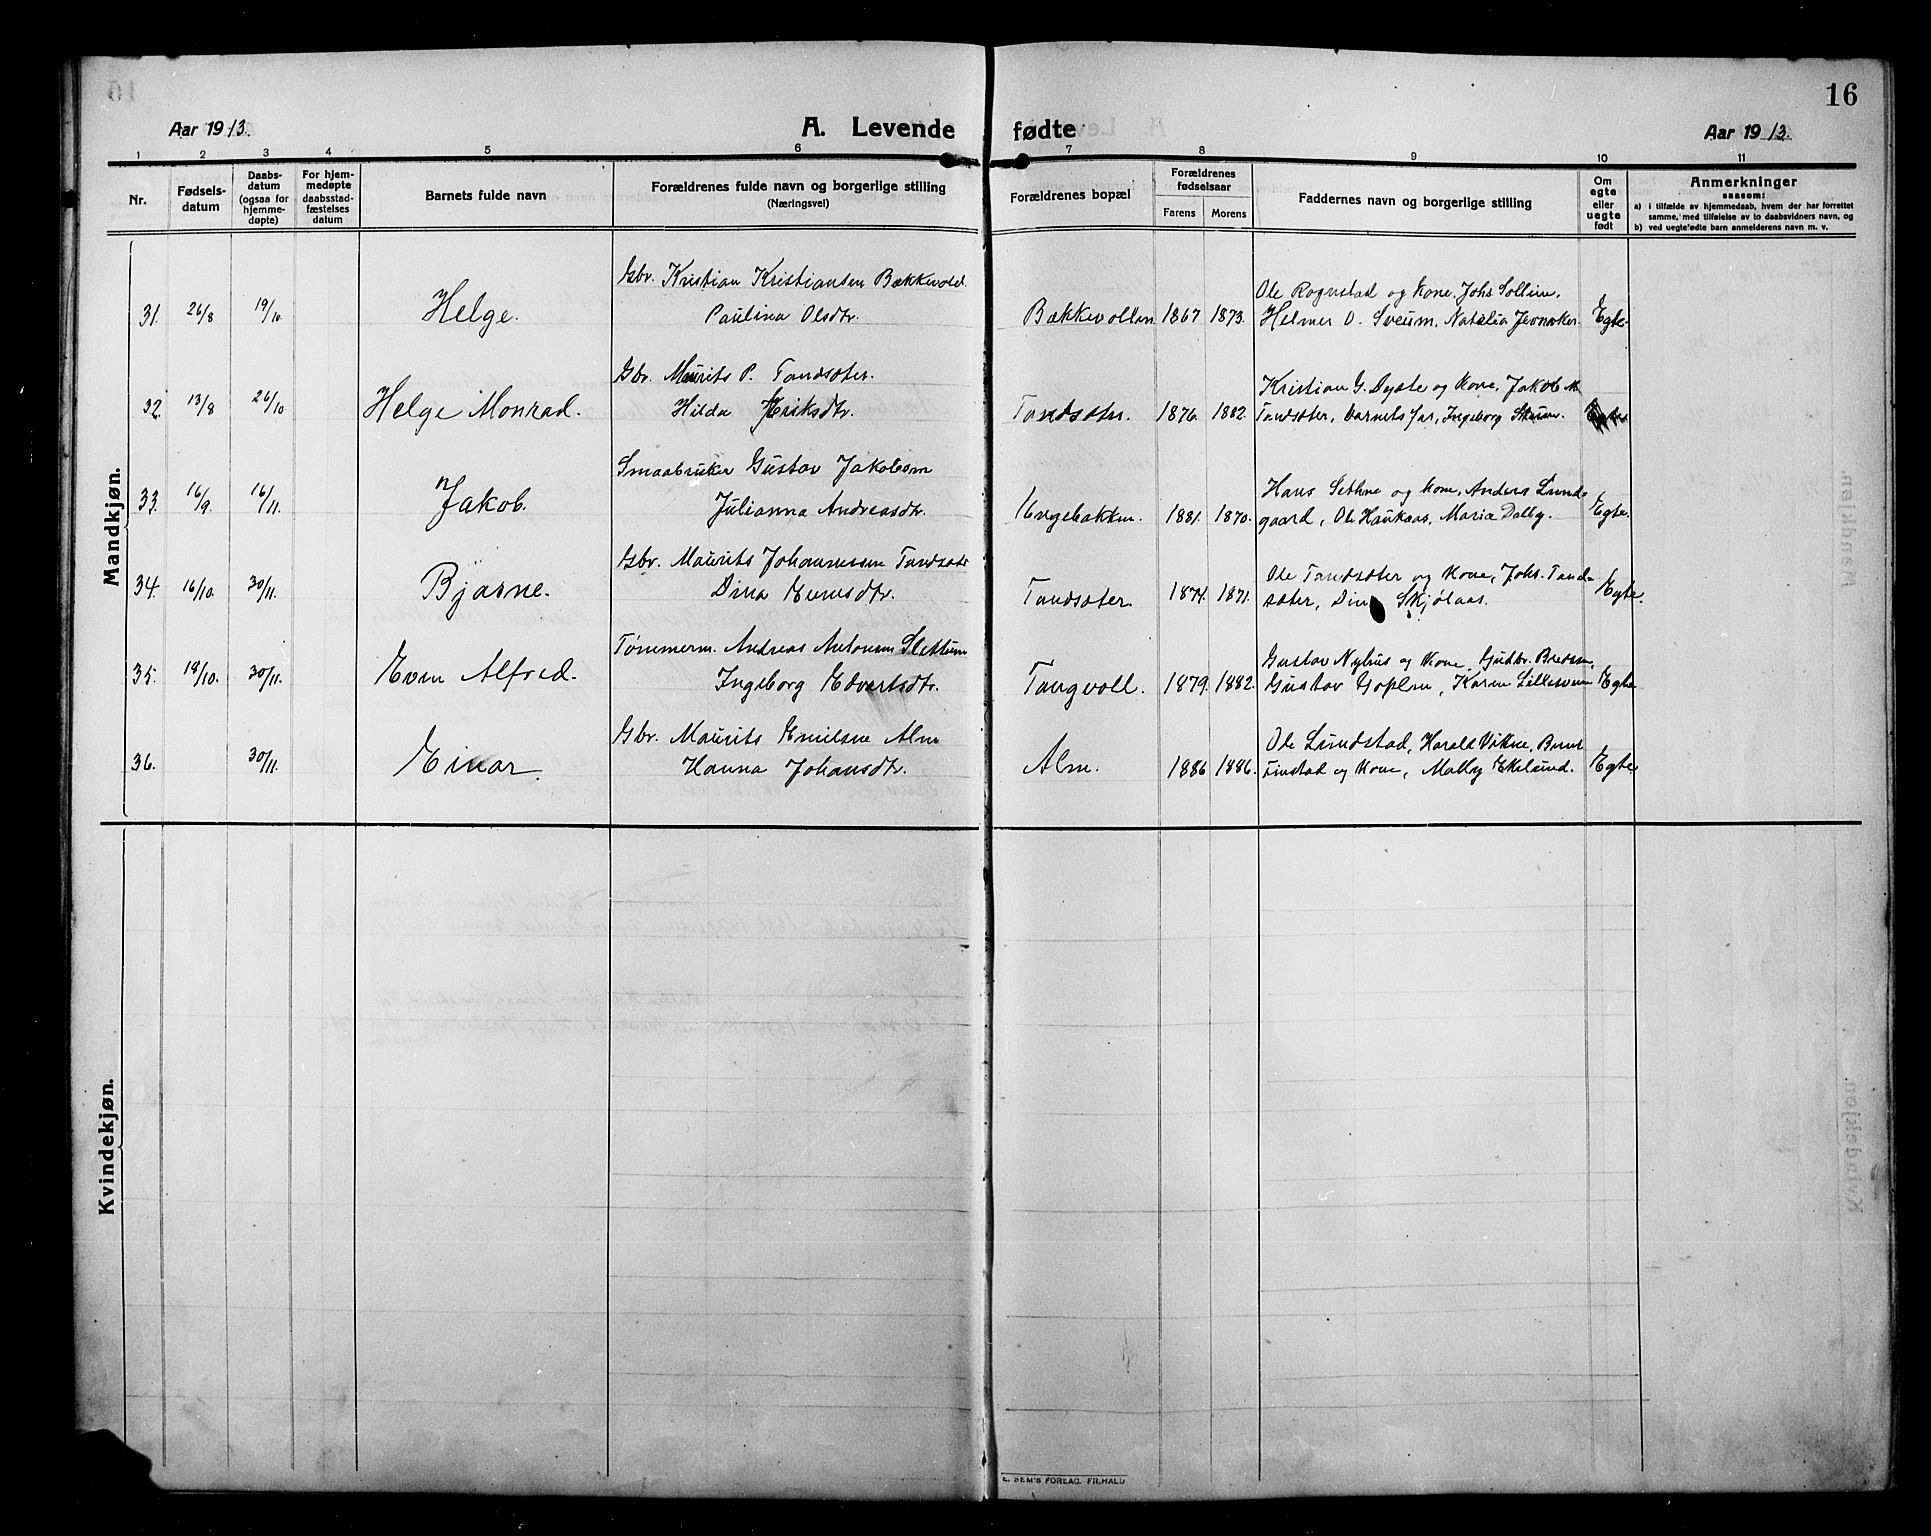 16
Aar 1913.
A. Levende fødte
Aar 1913.
1 2 3 4 5 6 7 8 9 10 11
Nr.
Fødsels-
datum
Daabs-
datum
(ogsaa for
hjemme-
døpte)
For hjem-
medøpte
daabsstad-
fæstelses
datum
Barnets fulde navn
Forældrenes fulde navn og borgerlige stilling
(Næringsvei)
Forældrenes bopæl
Forældrenes
fødselsaar
Farens Morens
Faddernes navn og borgerlige stilling
Om
egte
eller
uegte
født
Anmerkninger
saasom:
a) i tilfælde av hjemmedaab, hvem der har forrettet
samme, med tilføielse av to daabsvidners navn, og
b) ved uegtefødte barn anmelderens navn m. v.
Mandkjøn.
Gbr. Kristian Kristiansen Bækkevold.
Ole Rognstad og kone, Johs Sollien,
31. 26/8 19/10. Helge. Paulina Olsdtr. Bækkevollen 1867 1873. Helmer O. Sveum, Natalia Jevnaker. Egte.
Gbr. Maurits P. Tandsæter.
Kristian G. Dyste og kone, Jakob M
32. 13/8 26/10 Helge Monrad. Hilda Eriksdtr. Tandsætn. 1876. 1882. Tandsæter, barnets far, Ingeborg Skum.
Smaabruker Gustav Jakobsen
Hans Sethne og kone, Anders Lund-
33. 16/9. 16/11. Jakob. Julianna Andreasdtr. 1881. 1870. gaard, Ole Haukaas, Maria Dalby. Egte.
Gbr. Maurits Johannessen Tandsætr
Ole Tandsæter og kone, Johs. Tand-
34. 16/10. 30/11. Bjarne. Dina Evensdtr. Tandsæter. 1874. 1871. sæter, Dina Skjølaas. Egte.
Tømmerm. Andreas Antonsen Slettum
Gustav Nyhus og kone, Gudbr. Bredsen,
35. 18/10. 30/11. Even Alfred. Ingeborg Edvartsdtr. Tangvoll. 1879. 1882. Gustav Goplen, Karen Lillesveen Egte
Gbr. Maurits Emilsen Alm
Ole Lundstad, Harald Vikne, Bernt
36. 30/11. Einar. Hanna Johansdtr. Alm. 1886 1886. Finstad og kone, Mally Ekelund. Egte
Kvindekjøn.
E. SEM'S FORLAG. FR.HALD